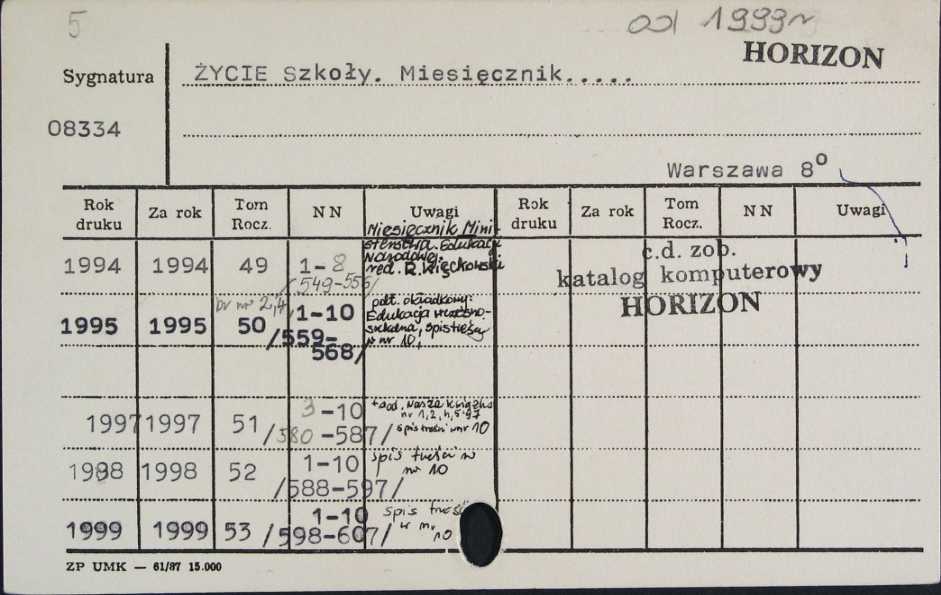 5
od 1999 r
HORIZON
Sygnatura ŻYCIE Szkoły. Miesięcznik.....
08334
Warszawa 8°
Rok druku Za rok Tom Rocz. N N Uwagi Rok druku Za rok Tom Rocz. N N Uwagi
Miesięcznik Mini-
sterstwa Edukacji
Narodowej.
red. R. Więckowski
1994 1994 49 1-8
/549-556/
c.d. zob.
katalog komputerowy
HORIZON
br nr 2,4,
1995 1995 50 1-10
/559-
568/
podt. okładkowy:
Edukacja wczesno-
szkolna, spis treści
w nr 10,
1997 1997 51 3-10
/580-587/
+ dod. Nasza Książka
nr 1,2,4,5.97
spis treści w nr 10
1998 1998 52 1-10
/588-597/
spis treści w
nr 10
1999 1999 53 1-10
/598-607/
spis treści
w nr
10
ZP UMK — 61/87 15.000